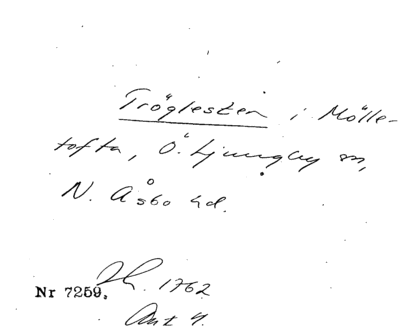 Tröglesten i Mölle-
tofta, Ö. Ljungby sn,
N. Åsbo hd.
1762
Nr 7259.
Ant 4.